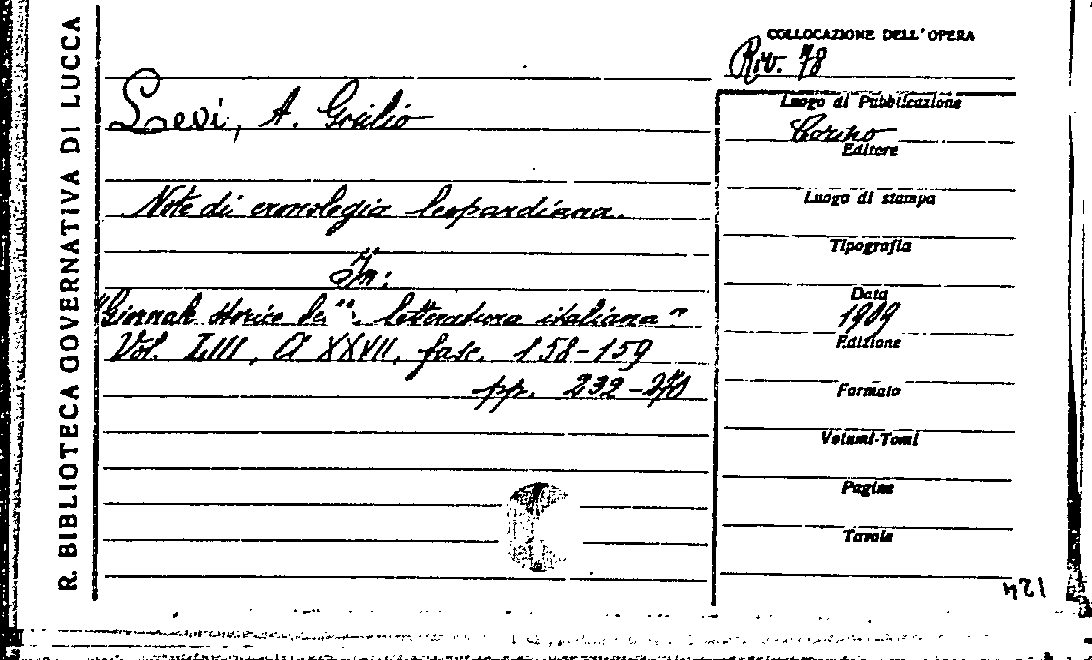 R. BIBLIOTECA GOVERNATIVA DI LUCCA
COLLOCAZIONE DELL'OPERA
Riv. 78
Levi, A. Giulio
Note di cronologia leopardiana.
In:
"Giornale storico de letteratura italiana"
Vol. LIII, A XXVII, fasc. 158-159
pp. 232-
Luogo di Pubblicazione
Torino
Editore
Luogo di stampa
Tipografia
Data
1909
Edizione
Formato
Volumi-Tomi
Pagine
Tavole
421